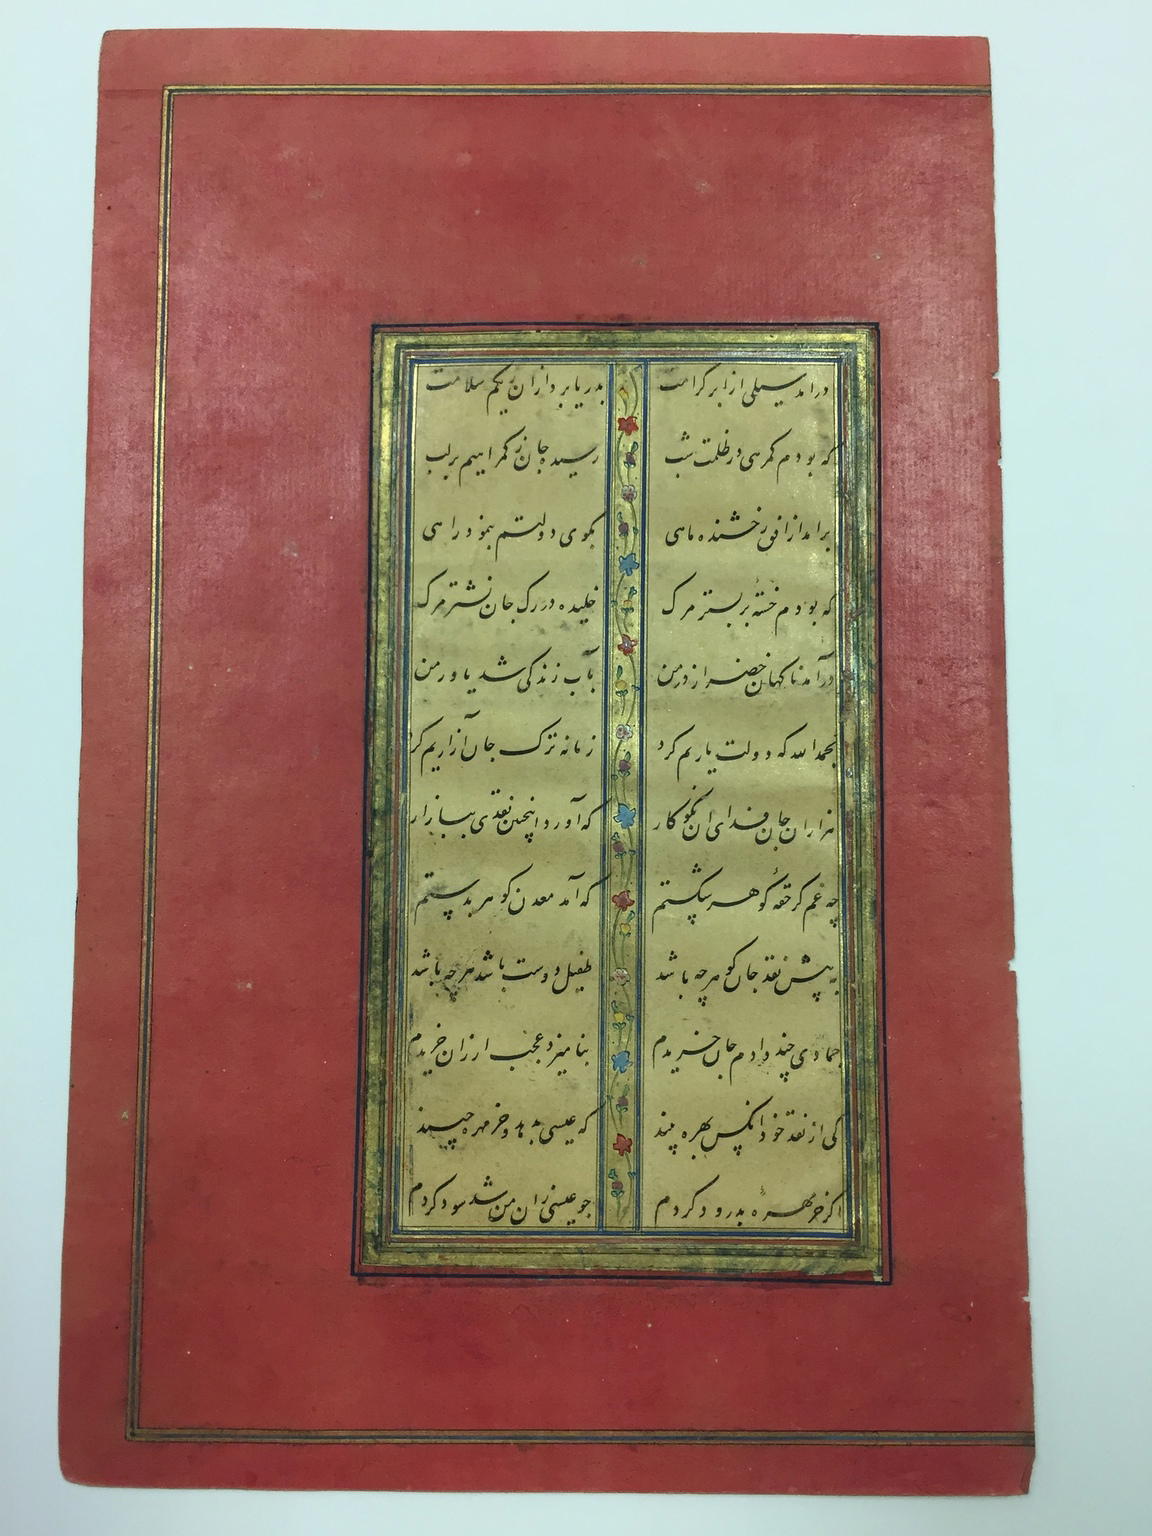 درامد سیلی از ابر کرامت بدریا برد ازان ریکم سلامت
که بودم کمرهی در ظلمت شب رسیده جان ز کمراهیم بر لب
برامد از افق رخشنده ماهی بکوی دولتم بنمود راهی
که بودم خستهٔ بر بستر مرک خلیده در رک جان نشتر مرک
درآمد ناکهان خضر از در من بآب زندکی شد یاور من
بحمدالله که دولت یاریم کرد زمانه ترک جان آزاریم کرد
هزاران جان فدای ان نکو کار که آورد اینچنین نقدی ببازار
چه غم کر حقهٔ کوهر شکستم که آمد معدن کوهر بدستم
به پیش نقد جان کوهر چه باشد طفیل دوست باشد هرچه باشد
جمادی چند دادم جان خریدم بنامیزد عجب ارزان خریدم
کی از نقد خود انکس بهره بیند که عیسی بدهد و خرمهره چیند
اکر خرمهرهٔ بدرود کردم چو عیسی زان من شد سود کردم